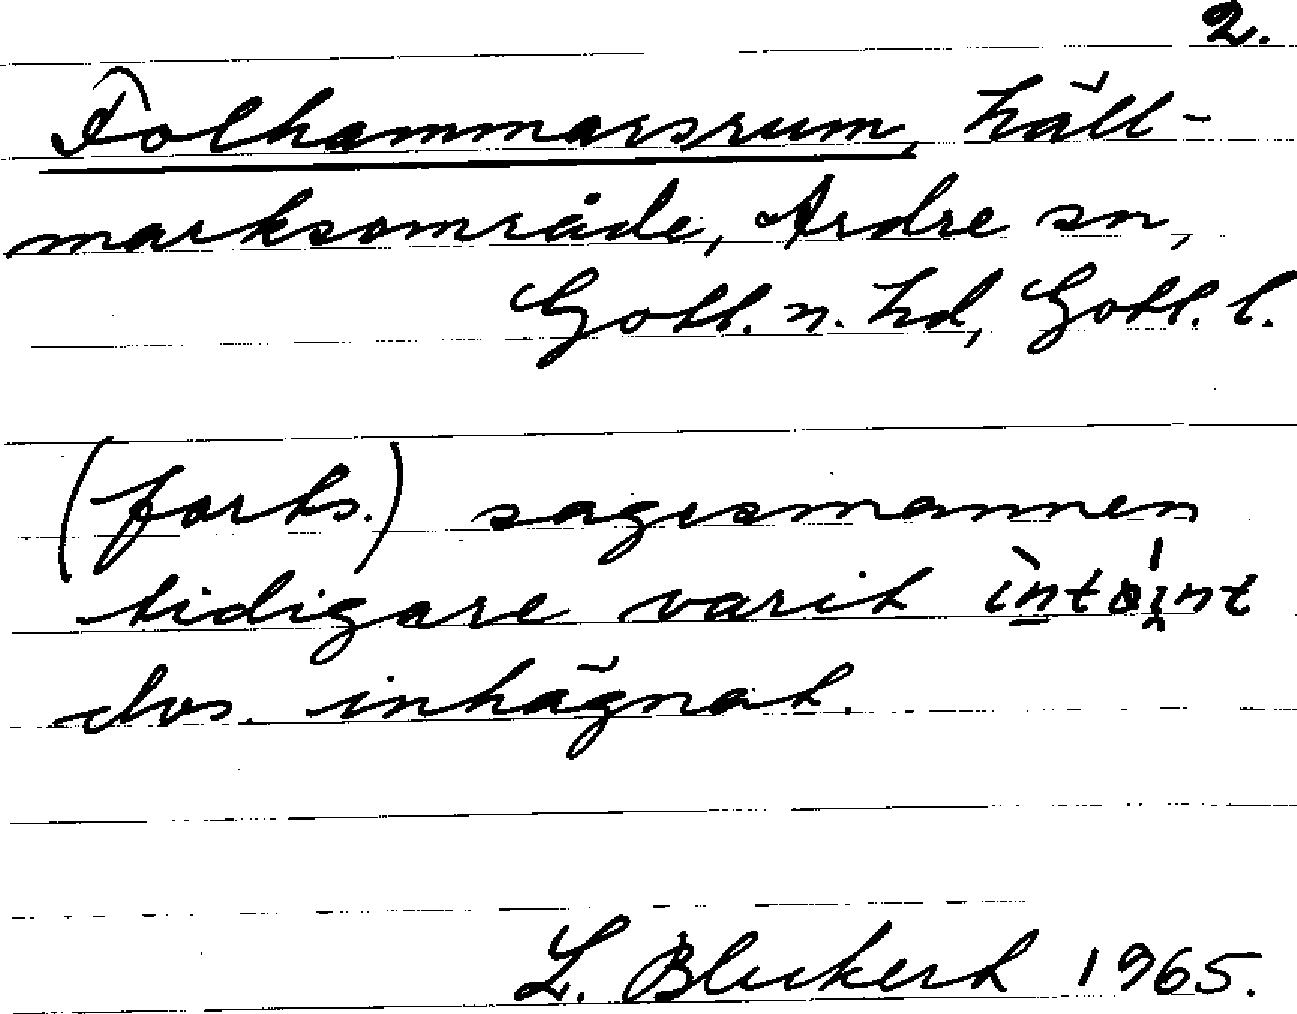 2.
Folhammarsrum, häll-
marksområde, Ardre sn,
Gotl. n. hd, Gotl. l.
(forts.) sagesmannen
tidigare varit
dvs. inhägnat.
L. Bleckert 1965.